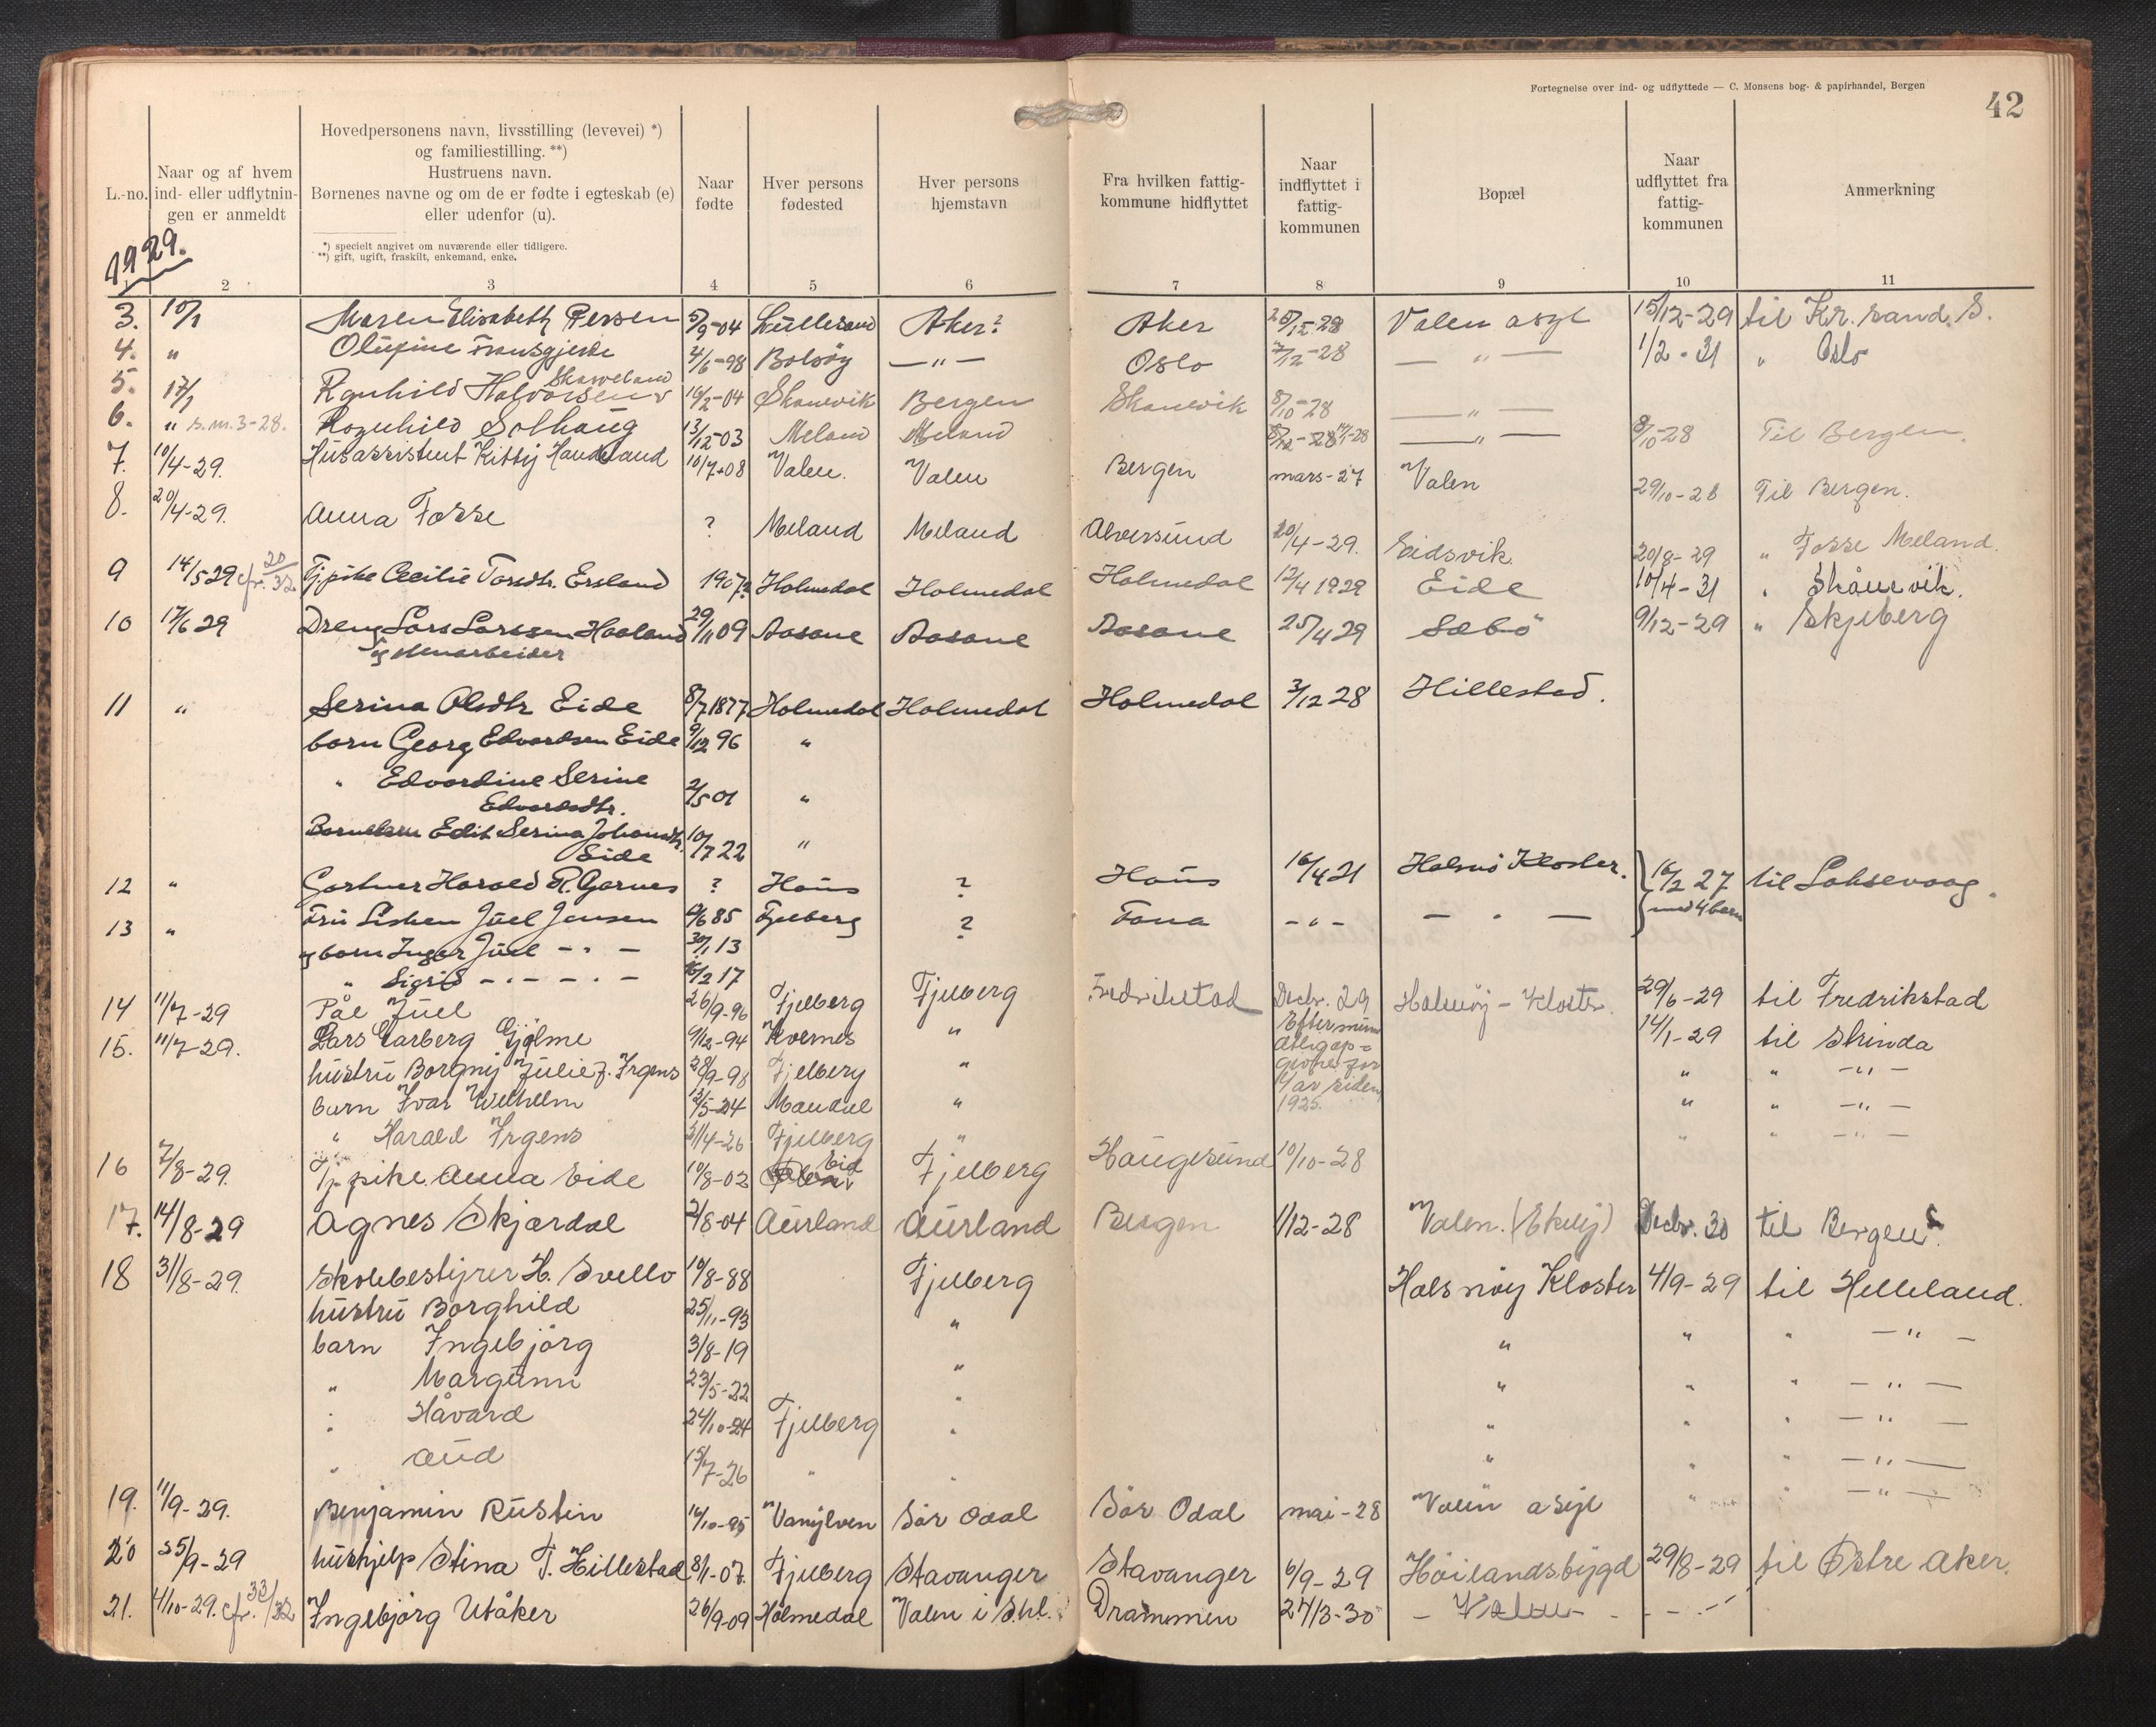 Fortegnelse over ind- og udflyttede — C. Monsens bog- & papirhandel, Bergen
42
L.-no.
Naar og af hvem ind- eller udflytningen er anmeldt
Hovedpersonens navn, livsstilling (levevei) *)
og familiestilling. **)
Hustruens navn.
Børnenes navne og om de er fødte i egteskab (e)
eller udenfor (u).
*) specielt angivet om nuværende eller tidligere.
**) gift, ugift, fraskilt, enkemand, enke.
Naar fødte
Hver persons fødested
Hver persons hjemstavn
Fra hvilken fattigkommune hidflyttet
Naar indflyttet i fattigkommunen
Bopæl
Naar udflyttet fra fattigkommunen
Anmerkning
1929.
2 3 4 5 6 7 8 9 10 11
3. 10/1 Maren Elisabeth Persen 5/9-04 Lillesand Aker? Aker 28 Valen asyl 15/12-29 til Kr. sand. S.
4. " Olufine 4/6-98 Bolsöy — " — Oslo 7/12-28 — " — 1/2-31 " Oslo
5. 17/1 Ragnhild Halvorsen 16/2-04 Skanevik Bergen Skanevik 8/10-28 — " —
6. " s.m. 3-28. Ragnhild Solhaug 13/12-03 Meland Meland — " — 8/10-28 Til Bergen.
7. 10/4-29. Husassistent Kitty Handeland 10/7-08 Valen. Valen Bergen mars-27 Valen 29/10-28 Til Bergen.
8. 20/4-29. Anna Fosse ? Meland Meland Alversund 20/4-29. Eidsvik 20/8-29 " Fosse Meland.
9 14/5 29 cfr. 20/32 Tj.pike Cecilie Torsdtr. Ersland 1907 Holmedal Holmedal Holmedal 12/4 1929 Eide 10/4-31 " Skånevik.
10 17/6 29 Dreng Lars Larssen Haaland 29/11 09 Aasane Aasane Aasane 25/4 29 Sæbö 9/12-29 " Skjeberg
11 " Serina Olsdtr Eide 8/7 1877 Holmedal Holmedal Holmedal 3/12 28 Hillestad.
born Georg Edvardsen Eide 9/12 96 "
" Edvardine Serine
Edvardsdtr. 2/5 01 "
Barnebarn Edit Serina Johansdtr.
Eide 10/7 22 "
12 " Gartner Harald R. Garnes ? Haus ? Haus 16/4 21 Halsnö Kloster. 16/2 27 til Laksevaag.
13 " Fru Lisken Juel Jensen 6/6 85 Fjelberg ? Fana - " - — " — med 4 barn
og born Inger Juel — " — 30/1 13
" Sigrid — " — " — 16/2 17
14 11/7-29 Pål Juel 26/9-96 Fjelberg Fjelberg Fredrikstad Decbr. 29 Halsnöy-Kloster. 29/6-29 til Fredrikstad
15. 11/7-29. Lars Garberg Gjölme 9/12-94 Kvernes " 14/1-29 til Strinda
Efter
for
4 år siden
1925.
hustru Borgny Julie f. Irgens 28/9-98 Fjelberg " " " — " —
barn Ivar Wilhelm 12/5-24 Mandal " " " — " —
" Harald Irgens 3/4-26 Fjelberg " " " — " —
16 7/8-29. Tj.pike Anna Eide 10/8-02 Fjelberg Haugesund 10/10-28
17. 14/8-29 Agnes Skjerdal 2/8-04 Aurland Aurland Bergen 1/12-28 Valen. Decbr. 30 til Bergen
18 31/8-29. Skolebestyrer H. Svello 10/8-88 Fjelberg Halsnöy Kloster 4/9-29 til Helleland.
hustru Borghild 25/11-93 " " " " — " —
barn Ingebjörg 3/8-19 " " " " — " —
" Margunn 23/5-22 " " " " — " —
" Håvard 24/10-24 Fjelberg " " " " — " —
" Aud 15/7-26 " " " " " — " —
19. 11/9-29. Benjamin Rustin 14/10-95 Vanylven Sör Odal Sör Odal mai-28 Valen asyl
20 25/9-29 hushjelp Stina T. Hillestad 8/1-07. Fjelberg Stavanger Stavanger 6/9-29 Höilandsbygd 29/8-29 til Östre Aker.
21. 4/10-29. cfr. 33/32 Ingebjörg Utåker 26/9-09 Holmedal Valen i Shl. Drammen 24/3-30 - Valen -